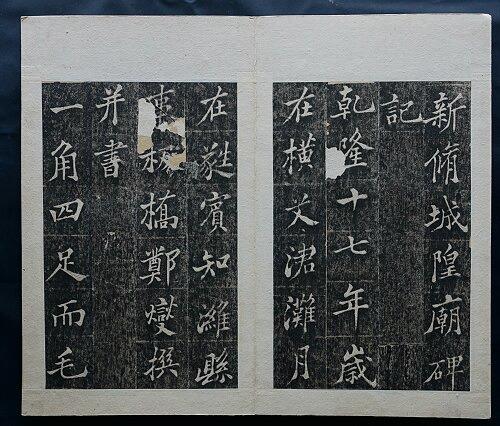 新脩城隍廟碑
記
乾隆十七年歲
在橫艾涒灘月
在蕤賓知濰縣
事板橋鄭燮撰
并書
一角四足而毛